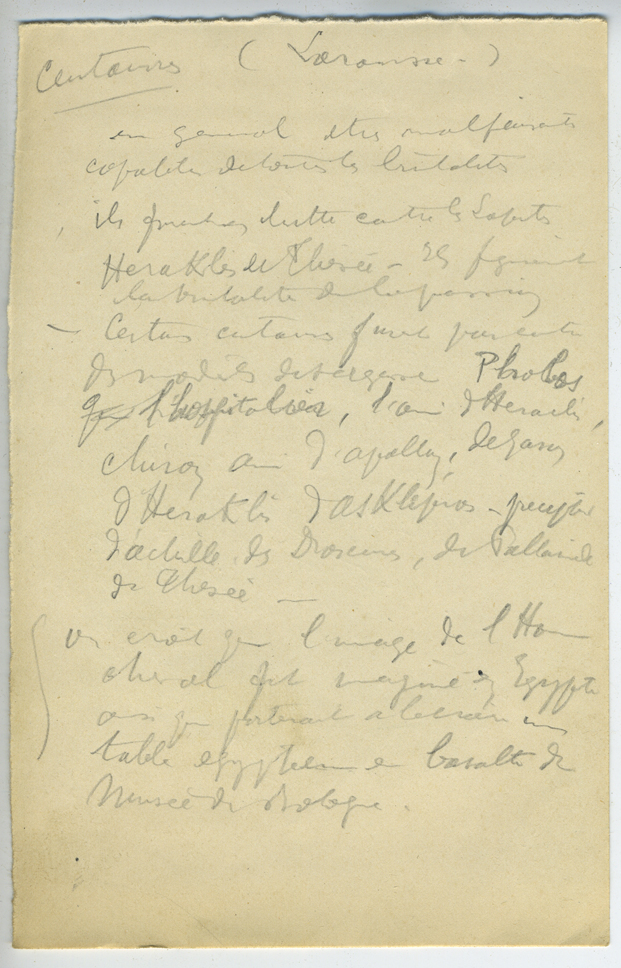 Centaures (Larousse -)
en general etres malfaisants
capables de toutes les brutalités
ils lutte contre les Lapithes
Heraklès et Thesée - Ils figurent
la brutalité de la passion
- Certains centaures furent par contre
des modèles de sagesse Pholos
l'hospitalier, l'ami d'Heraclès,
chiron ami d'apollon, de Jason
d'Heraklès d'asklépios -
d'achille, des Dioscures, de
de Thesée -
on croit que l'image de l'Homme
cheval fut imaginé en Egypte
ainsi que porterait a le croire une
table egyptienne en basalte du
Musée de Bologne.